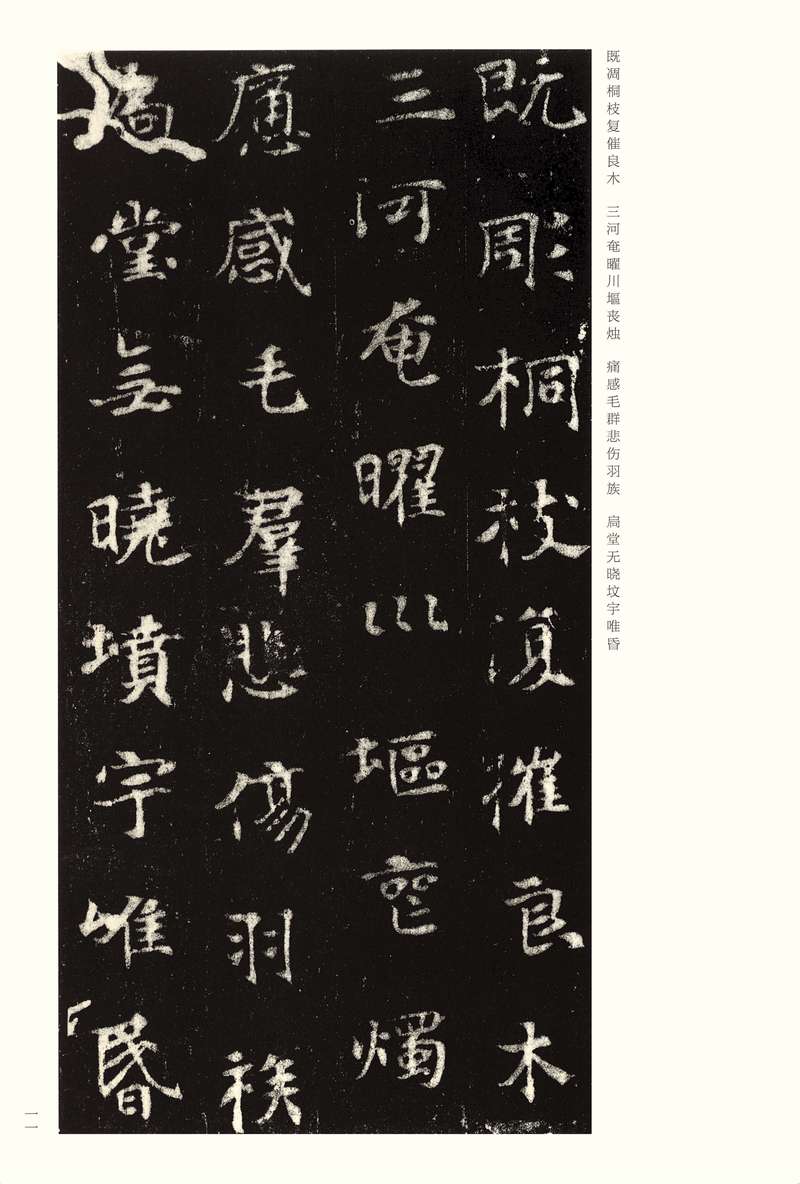 既凋桐枝复催良木　三河奄曜川塸丧烛　痛感毛群悲伤羽族　扃堂无晓坟宇唯昏
既彫桐枝復摧良木
三河奄曜川塸喪燭
慟感毛羣悲傷羽族
扃堂無曉墳宇唯昏
一一